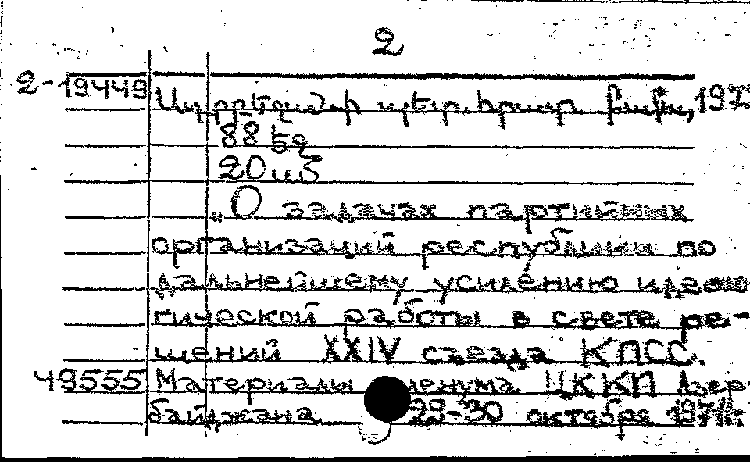 2
2-19449 Ադրբեջանի պետ. հրատ. Բաքու, 197
88 էջ
20 սմ
„О задачах партийных
организаций республики по
дальнейшему усилению идеоло
гической работы в свете ре-
шений XXIV съезда КПСС.
49555 Материалы пленума ЦК КП Азер
байджана 29-30 октября 1971г.